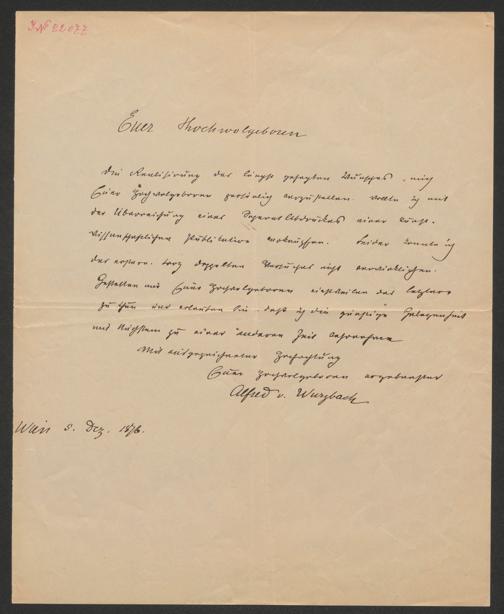 I.N. 22077
Euer Hochwolgeboren
Die Realisirung des längst gehegten Wunsches, mich
Euer Hochwolgeboren persönlich vorzustellen, wollte ich mit
der Überreichung eines Separatabdruckes einer kunst-
wissenschaftlichen Publikation verknüpfen. Leider konnte ich
das erstere, trotz doppelten Versuches nicht verwirklichen.
Gestatten mir Euer Hochwolgeboren einstweilen das letztere
zu thun und erlauben Sie, daß ich die günstige Gelegenheit
mit Nächstem zu einer anderen Zeit wahrnehme
Mit ausgezeichneter Hochachtung
Euer Hochwolgeboren ergebenster
Alfred v. Wurzbach
Wien 5. Dez. 1876.